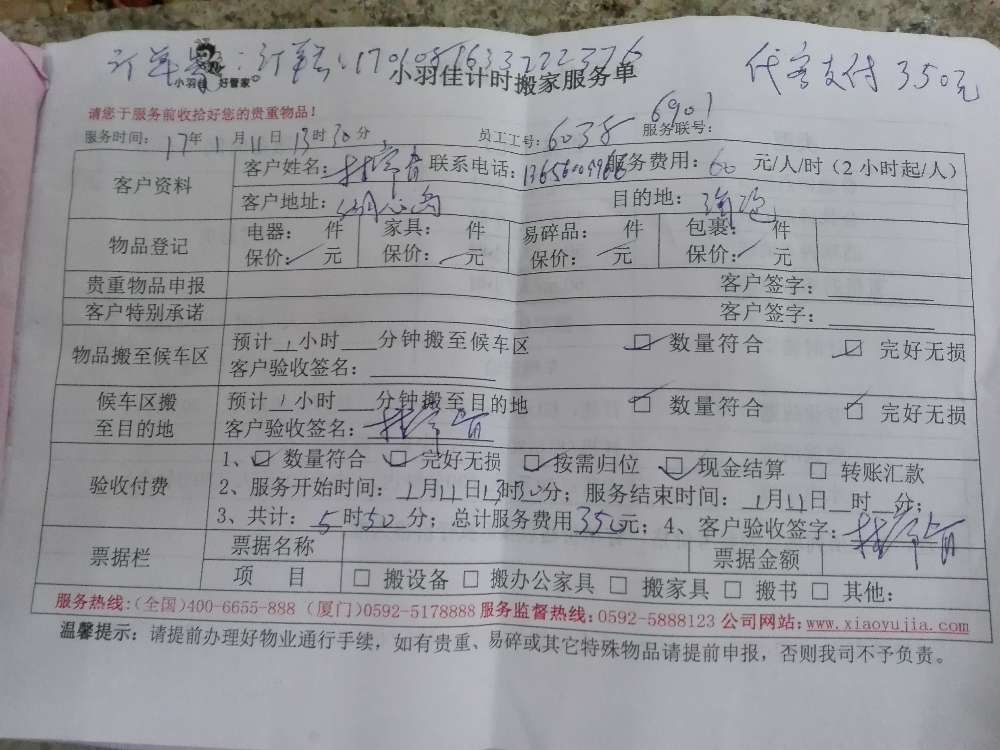 订单号:订单号:
代客支付 350元
小羽佳 好管家
小羽佳计时搬家服务单
请您于服务前收拾好您的贵重物品!
服务时间: 17年 1月11日 13时30分 员工工号: 6038 服务联号: 6901
客户资料 客户姓名: 联系电话: 服务费用: 60 元/人/时(2小时起/人)
客户地址: 湖心岛 目的地:
物品登记 电器: 件 家具: 件 易碎品: 件 包裹: 件
保价: 元 保价: 元 保价: 元 保价: 元
贵重物品申报 客户签字:
客户特别承诺 客户签字:
物品搬至候车区 预计 1 小时 分钟搬至候车区 ☑ 数量符合 ☑ 完好无损
客户验收签名:
候车区搬至目的地 预计 1 小时 分钟搬至目的地 ☑ 数量符合 ☑ 完好无损
客户验收签名:
验收付费 1、☑ 数量符合 ☑ 完好无损 ☑ 按需归位 ☑ 现金结算 □ 转账汇款
2、服务开始时间: 1月11日13时30分; 服务结束时间: 1月11日 时 分;
3、共计: 5时50分; 总计服务费用350元; 4、客户验收签字:
票据栏 票据名称 票据金额
项 目 □ 搬设备 □ 搬办公家具 □ 搬家具 □ 搬书 □ 其他:
服务热线:(全国)400-6655-888 (厦门)0592-5178888 服务监督热线:0592-5888123 公司网站:www.xiaoyujia.com
温馨提示: 请提前办理好物业通行手续,如有贵重、易碎或其它特殊物品请提前申报,否则我司不予负责。